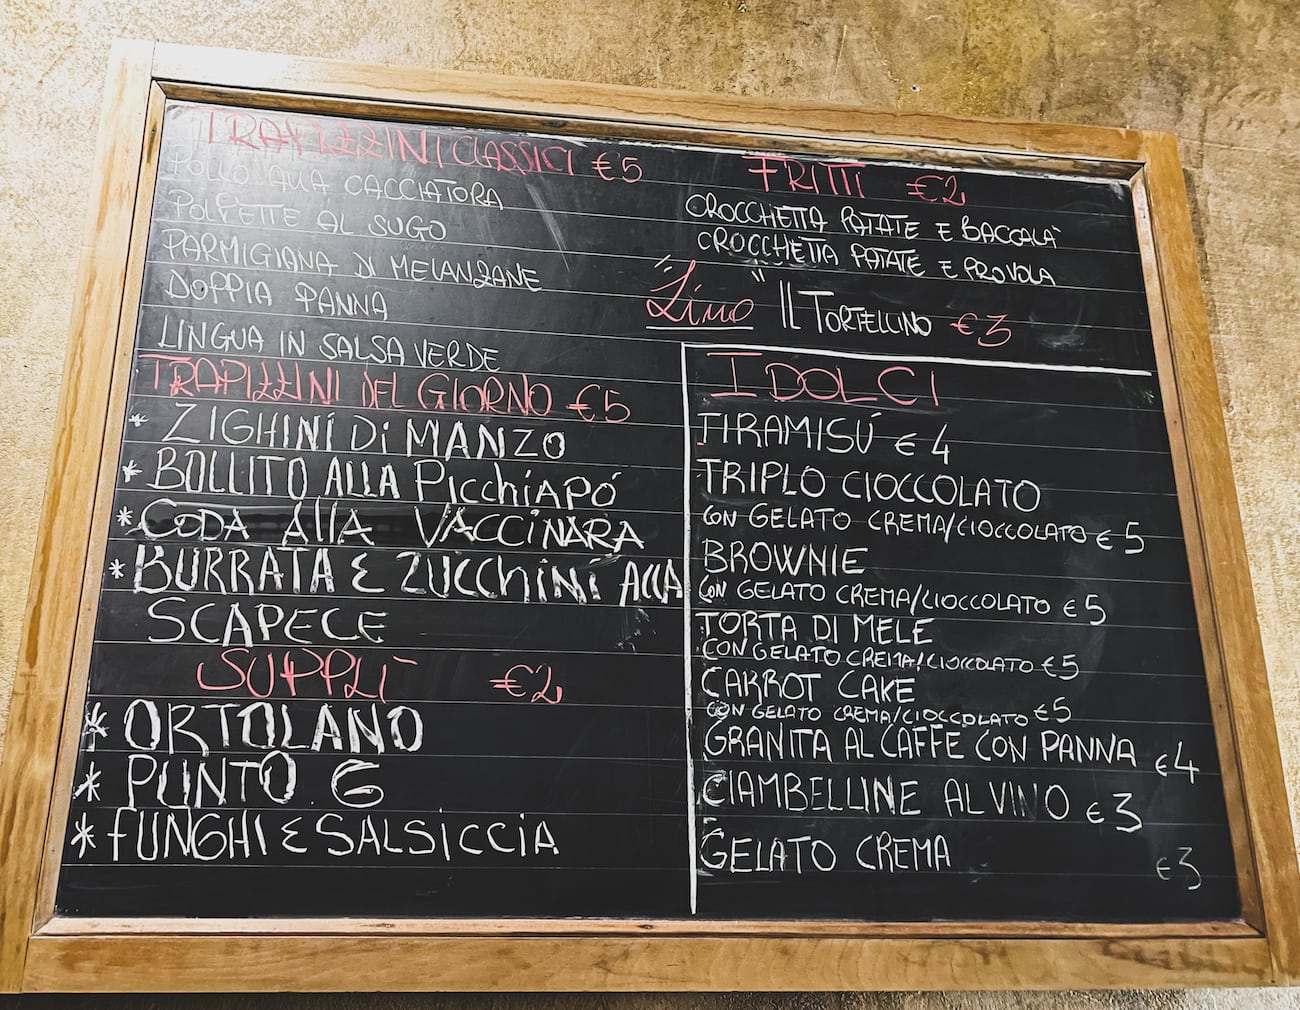 TRAPIZZINI CLASSICI €5
POLLO ALLA CACCIATORA
POLPETTE AL SUGO
PARMIGIANA DI MELANZANE
DOPPIA PANNA
LINGUA IN SALSA VERDE
TRAPIZZINI DEL GIORNO €5
* ZIGHINÍ Di MANZO
* BOLLITO ALLA PicchiAPÓ
* CODA AllA VACCiNARA
* BURRATA E ZUCChiNi ALLA
SCAPECE
SUPPLÌ €2
* ORTOLANO
* PUNTO G
* FUNGHI E SALSICCIA
FRITTI €2
CROCCHETTA PATATE E BACCALÀ
CROCCHETTA PATATE E PROVOLA
"Lino" IL TORTELLINO €3
I DOLCI
TIRAMISÚ €4
TRIPLO CIOCCOLATO
CON GELATO CREMA/CIOCCOLATO €5
BROWNIE
CON GELATO CREMA/CIOCCOLATO €5
TORTA DI MELE
CON GELATO CREMA/CIOCCOLATO €5
CARROT CAKE
CON GELATO CREMA/CIOCCOLATO €5
GRANITA AL CAFFE CON PANNA €4
CIAMBELLINE AL VINO €3
GELATO CREMA €3